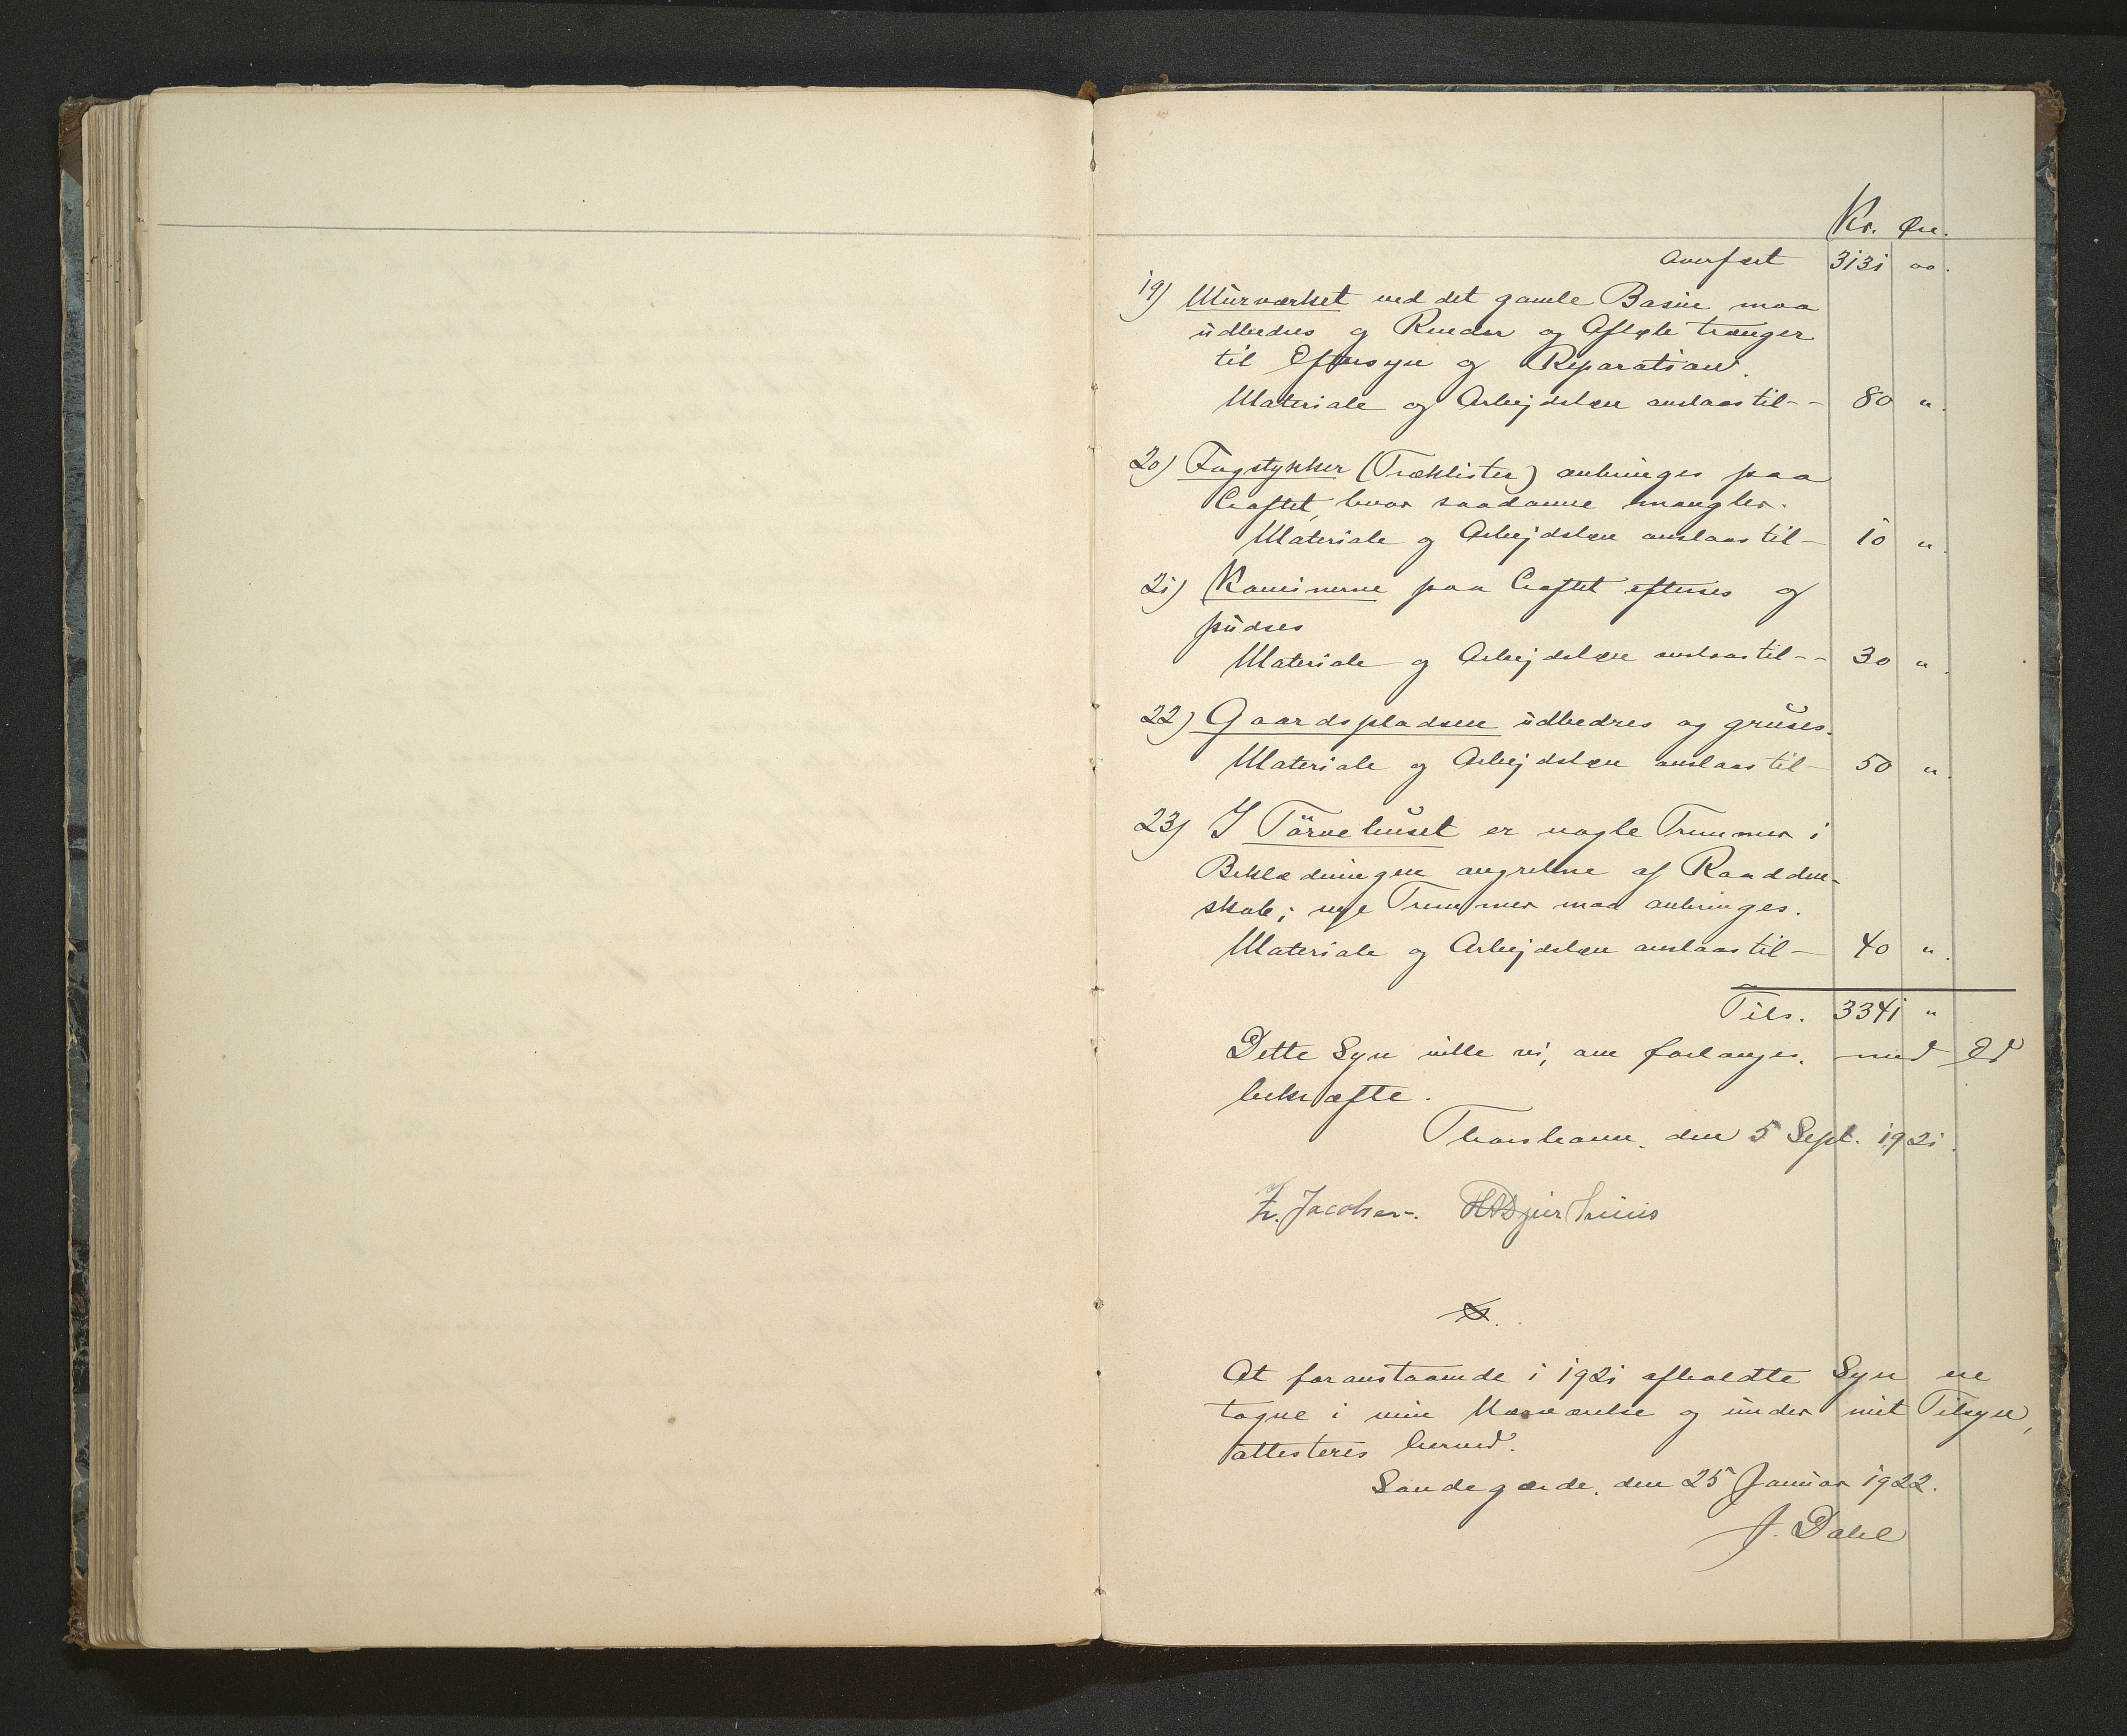 Kr. Øre.
Overført 3131 00.
19) Murværket ved det gamle Basin maa
udbedres og Render og Afløb trænger
til Eftersyn og Reparation.
Materiale og Arbejdsløn anslaas til-- 80 "
20) Fugstykker (Træklister) anbringes paa
Loftet, hvor saadanne mangler.
Materiale og Arbejdsløn anslaas til- 10 "
21) Kaminerne paa Loftet efterses og
pudses
Materiale og Arbejdsløn anslaas til-- 30 "
22) Gaardspladsen udbedres og gruses.
Materiale og Arbejdsløn anslaas til- 50 "
23) I Törvehuset er nogle Tremmer i
Beklædningen angrebne af Raadden-
skab; nye Tremmer maa anbringes.
Materiale og Arbejdsløn anslaas til- 40 "
Tils. 3341 "
Dette Syn ville vi, om forlanges, med Ed
bekræfte.
Thorshavn, den 5 Sept. 1921.
Z. Jacobsen.
At foranstaaende i 1921 afholdte Syn er
tagne i min Nærværelse og under mit Tilsyn,
attesteres herved.
Sandegærde, den 25 Januar 1922.
J. Dahl